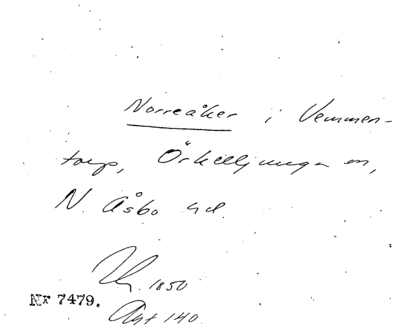 Norreåker i Vemmen-
torps, Örkelljunga sn,
N. Åsbo hd.
1850
Nr 7479.
Akt 140